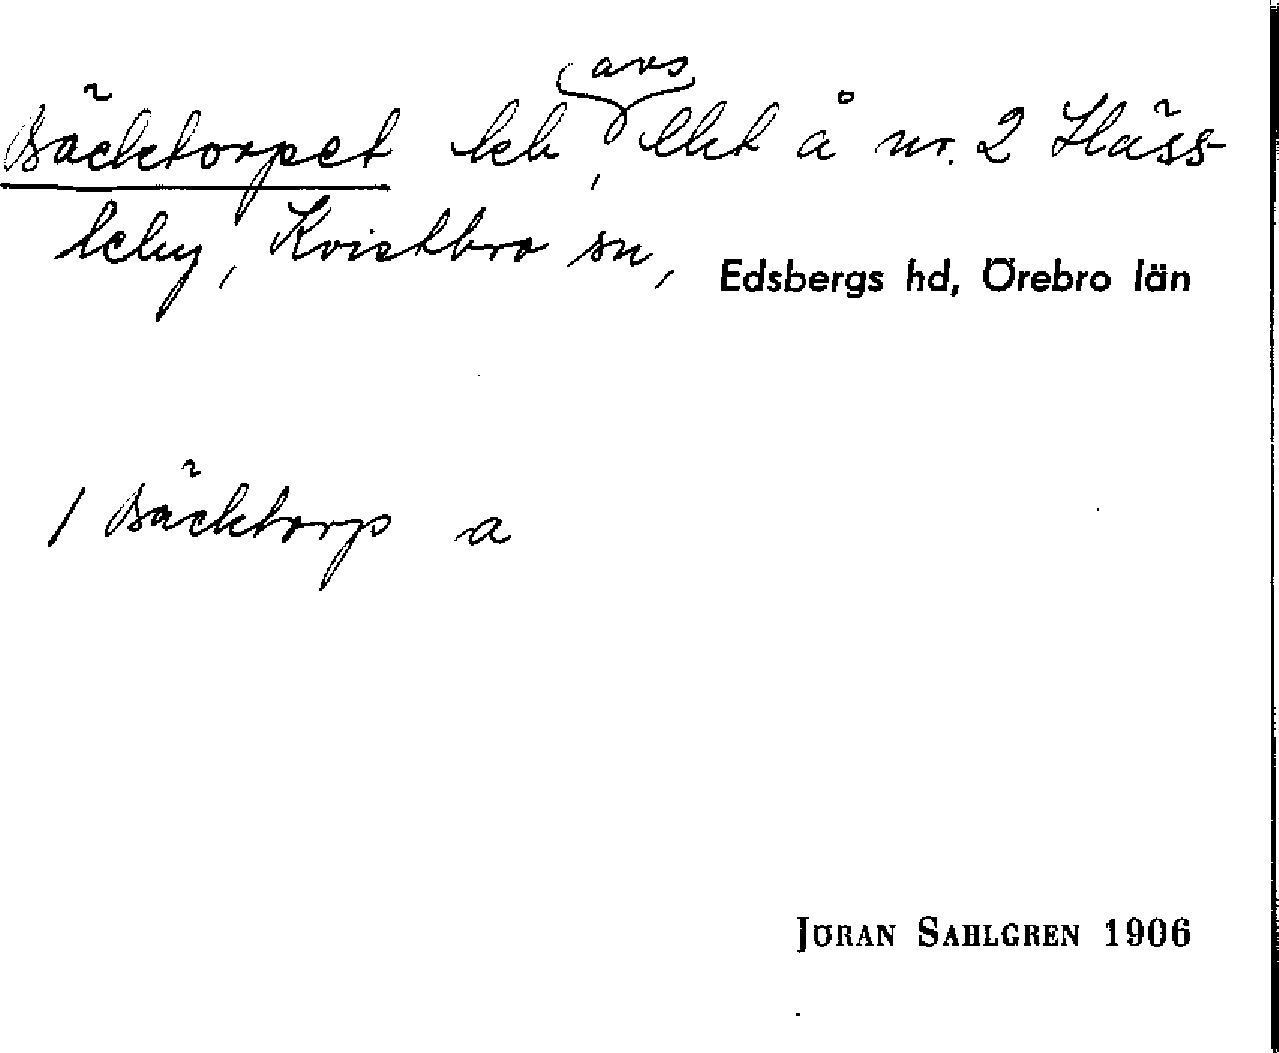 avs
Bäcktorpet lch, lht å nr. 2 Häss-
leby, Kvistbro sn, Edsbergs hd, Örebro län
/ Bäcktorp a
JÖRAN SAHLGREN 1906